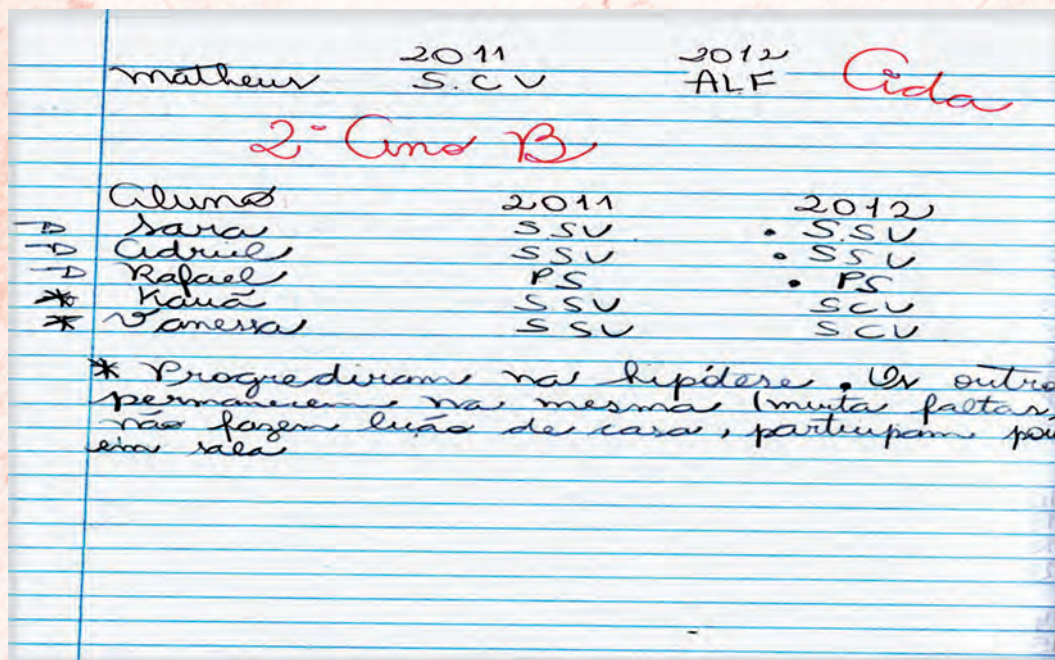 2011 2012 Cida
Matheus S.C V ALF
2º Ano B
Aluno 2011 2012
Sara S S V • S.S V
Adriel S S V • S S V
Rafael P S • P S
* Kauã S S V S C V
* Vanessa S S V S C V
* Progrediram na hipótese. Os outro
permanecem na mesma (muita faltas
não fazem lição de casa, participam pou
em sala